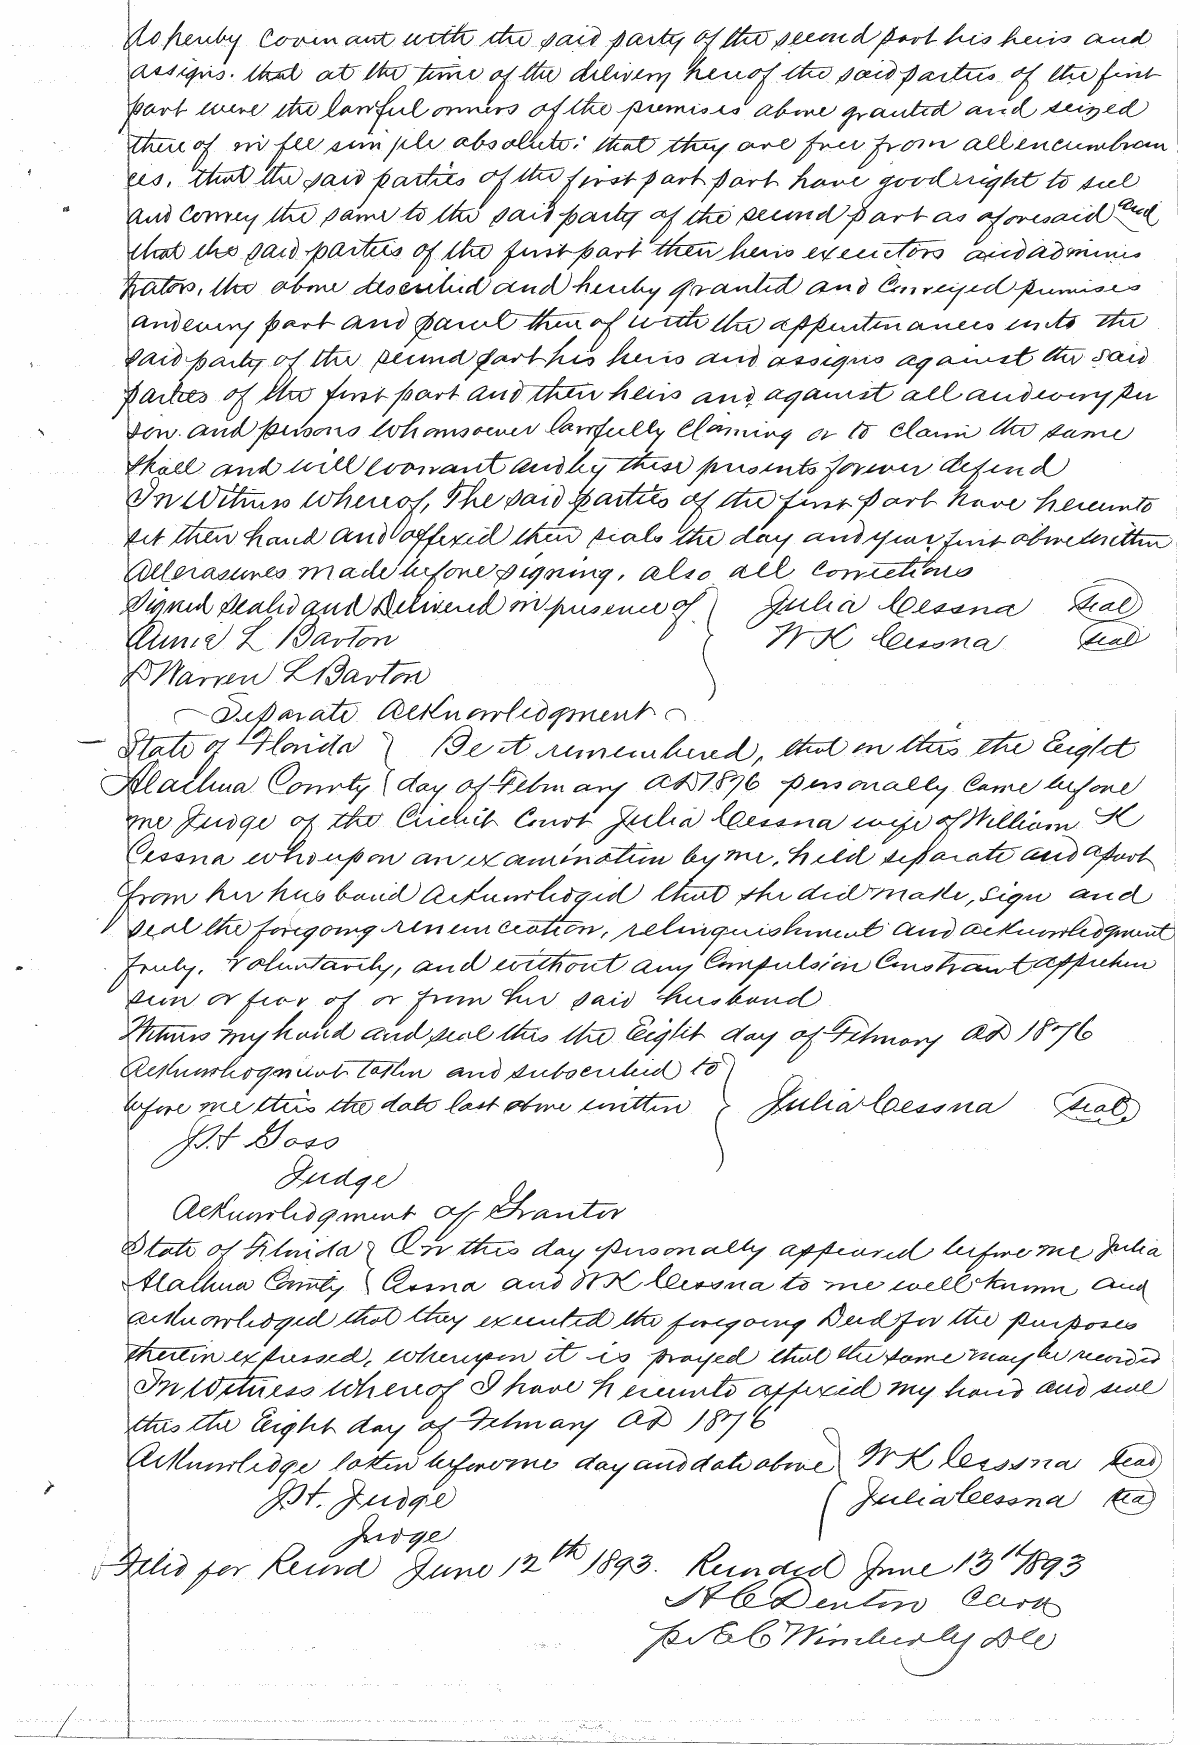 do hereby Covenant with the said party of the second part his heirs and
assigns. that at the time of the delivery hereof the said parties of the first
part were the lawful owners of the premises above granted and seized
there of in fee simple absolute; that they are free from all encumbran
ces, that the said parties of the first part part have good right to sell
and Convey the same to the said party of the second part as aforesaid and
that the said parties of the first part their heirs executors and adminis
trators, the above described and hereby granted and Conveyed premises
and every part and parcel there of with the appurtenances unto the
said party of the second part his heirs and assigns against the said
parties of the first part and their heirs and against all and every per
son and persons Whomsoever lawfully Claiming or to claim the same
shall and will warrant and by these presents forever defend
In Witness Whereof, The said parties of the first part have hereunto
set their hand and affixed their seals the day and year first above written
All erasures made before signing, also all corrections
Signed Sealed and Delivered in presence of Julia Cessna Seal
Annie L Barton W K Cessna Seal
D Warren L Barton
Separate Acknowledgment
State of Florida Be it remembered, that on this the Eight
Alachua County day of February AD 1876 personally Came before
me Judge of the Circuit Court Julia Cessna wife of William K
Cessna who upon an examination by me, held separate and apart
from her husband acknowledged that she did make, sign and
seal the foregoing renunciation, relinquishment and acknowledgment
freely, Voluntarily, and without any Compulsion Constraint apprehen
sion or fear of or from her said husband
Witness my hand and seal this the Eight day of February AD 1876
Acknowledgment taken and subscribed to
before me this the date last above written Julia Cessna Seal
J.H Goss
Judge
Acknowledgment of Grantor
State of Florida On this day personally appeared before me Julia
Alachua County Cessna and W K Cessna to me well known and
acknowledged that they executed the foregoing Deed for the purposes
therein expressed, whereupon it is prayed that the same may be recorded
In Witness Whereof I have hereunto affixed my hand and seal
this the Eight day of February AD 1876
Acknowledge taken before me day and date above W K Cessna Seal
Judge Julia Cessna Seal
Judge
Filed for Record June 12th 1893. Recorded June 13th 1893
H C Denton Clerk
pr E C Wimberly DC